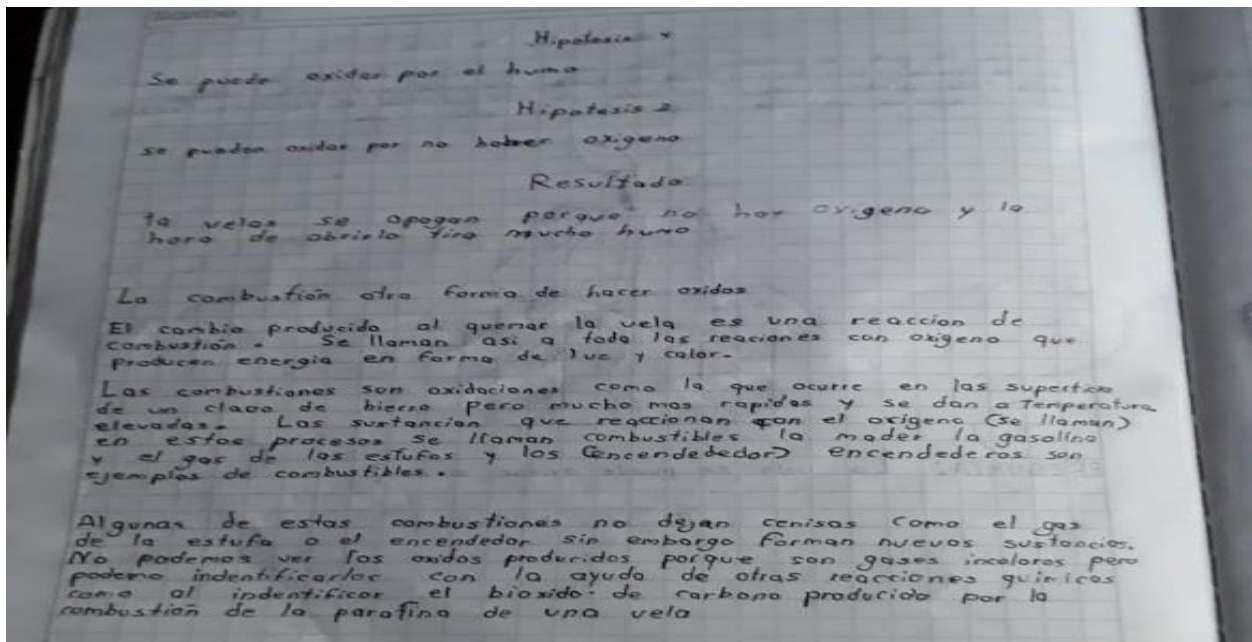 Hipotesis
Se puede oxidar por el humo
Hipotesis 2
se pueden oxidar por no haber oxigeno
Resultado
la velas se apagan porque no hay oxigeno y la
hora de abrirlo tira mucho humo
La combustión otra forma de hacer oxidos
El cambio producido al quemar la vela es una reaccion de
combustión. Se llaman asi a toda las reaciones con oxigeno que
producen energia en forma de luz y calor.
Las combustiones son oxidaciones como la que ocurre en las superficie
de un clavo de hierro pero mucho mas rapidas y se dan a Temperatura
elevadas. Las sustancian que reaccionan con el origeno (se llaman)
en estos procesos se llaman combustibles la mader la gasolina
y el gas de las estufas y los (encendededor) encendederos son
ejemplos de combustibles.
Algunas de estas combustiones no dejan cenisas como el gas
de la estufa o el encendedor sin embargo forman nuevos sustancias.
No podemos ver los oxidos producidos porque son gases incoloros pero
podemo indentificarlos con la ayuda de otras reacciones quimicas
como al indentificar el bioxido de carbono producido por la
combustión de la parafina de una vela